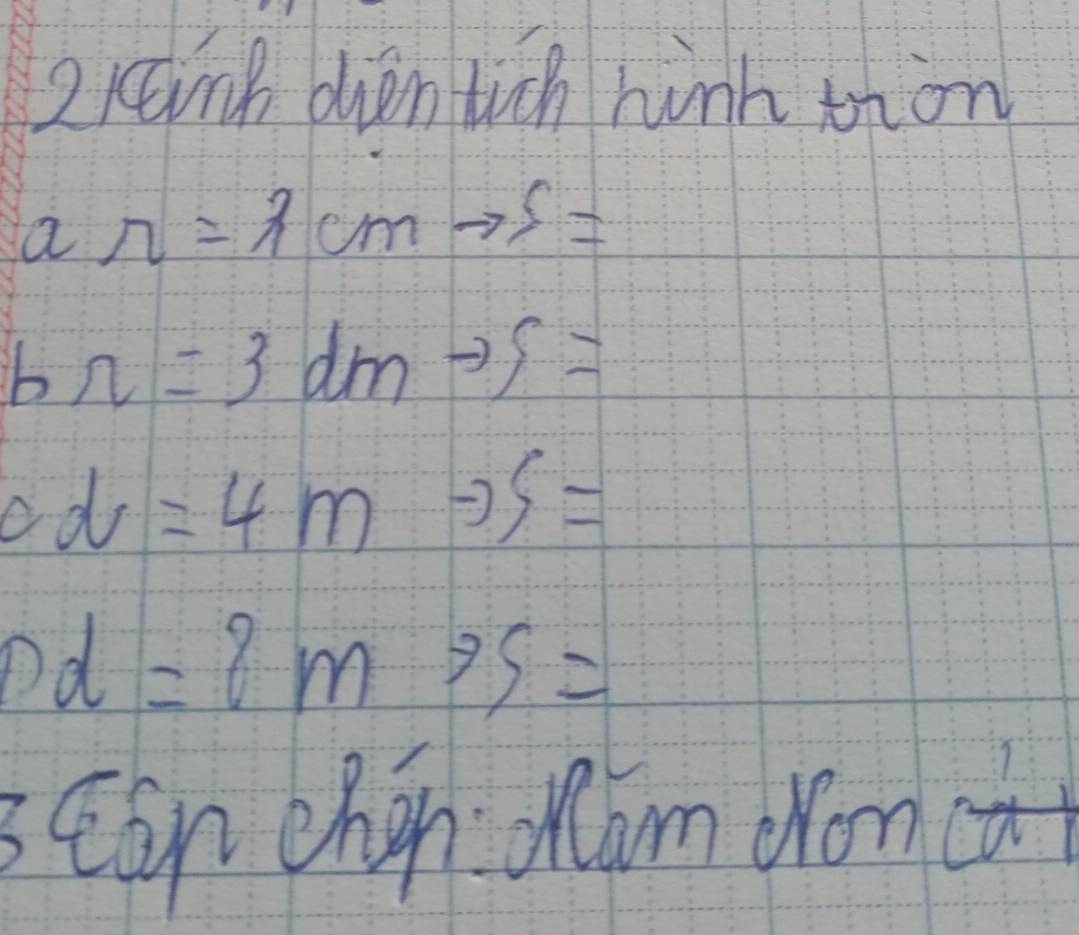 2 Tính diện tích hình tròn
a r = 1 cm → S =
b r = 3 dm → S =
c d = 4 m → S =
D d = 8 m → S =
3 Tập chép: Mầm Non